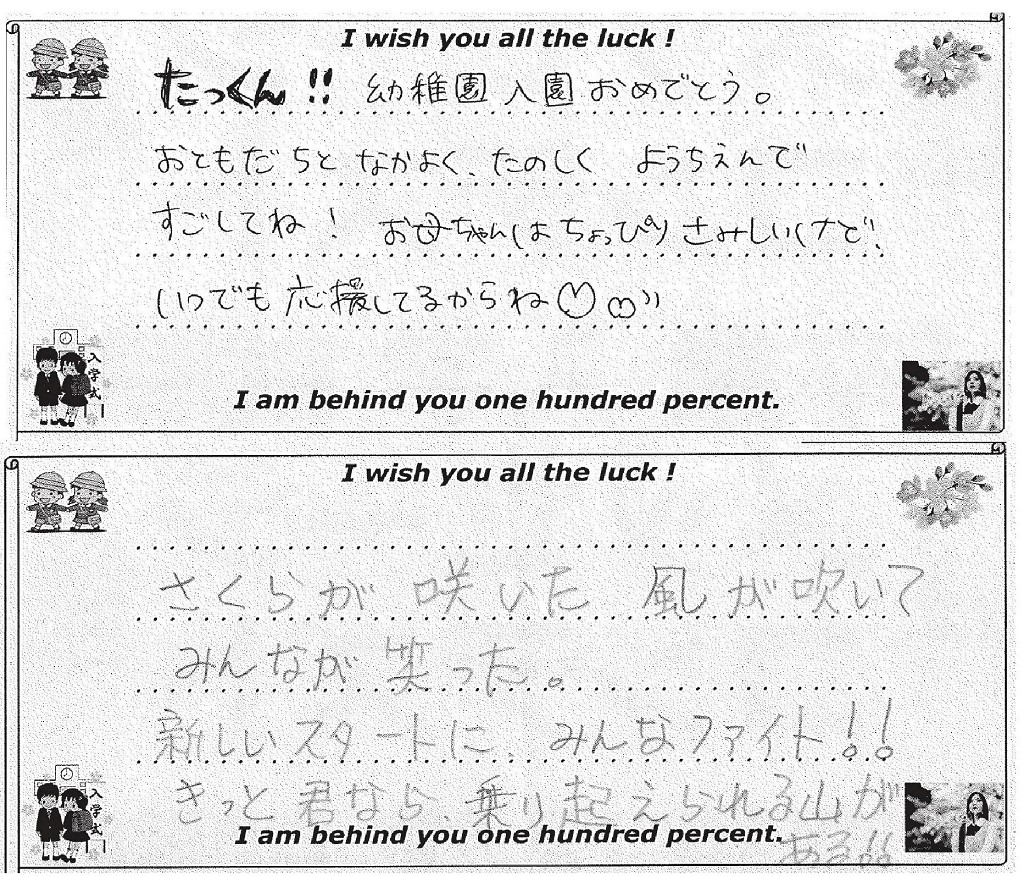 I wish you all the luck !
たっくん!! 幼稚園入園おめでとう。
おともだちと なかよく、たのしく ようちえんで
すごしてね! お母ちゃんはちょっぴりさみしいけど、
いつでも応援してるからね
入学式
I am behind you one hundred percent.
I wish you all the luck !
さくらが咲いた 風が吹いて
みんなが笑った。
新しいスタートに、みんなファイト!!
きっと君なら、乗り起えられる山が
ある!!
入学式
I am behind you one hundred percent.